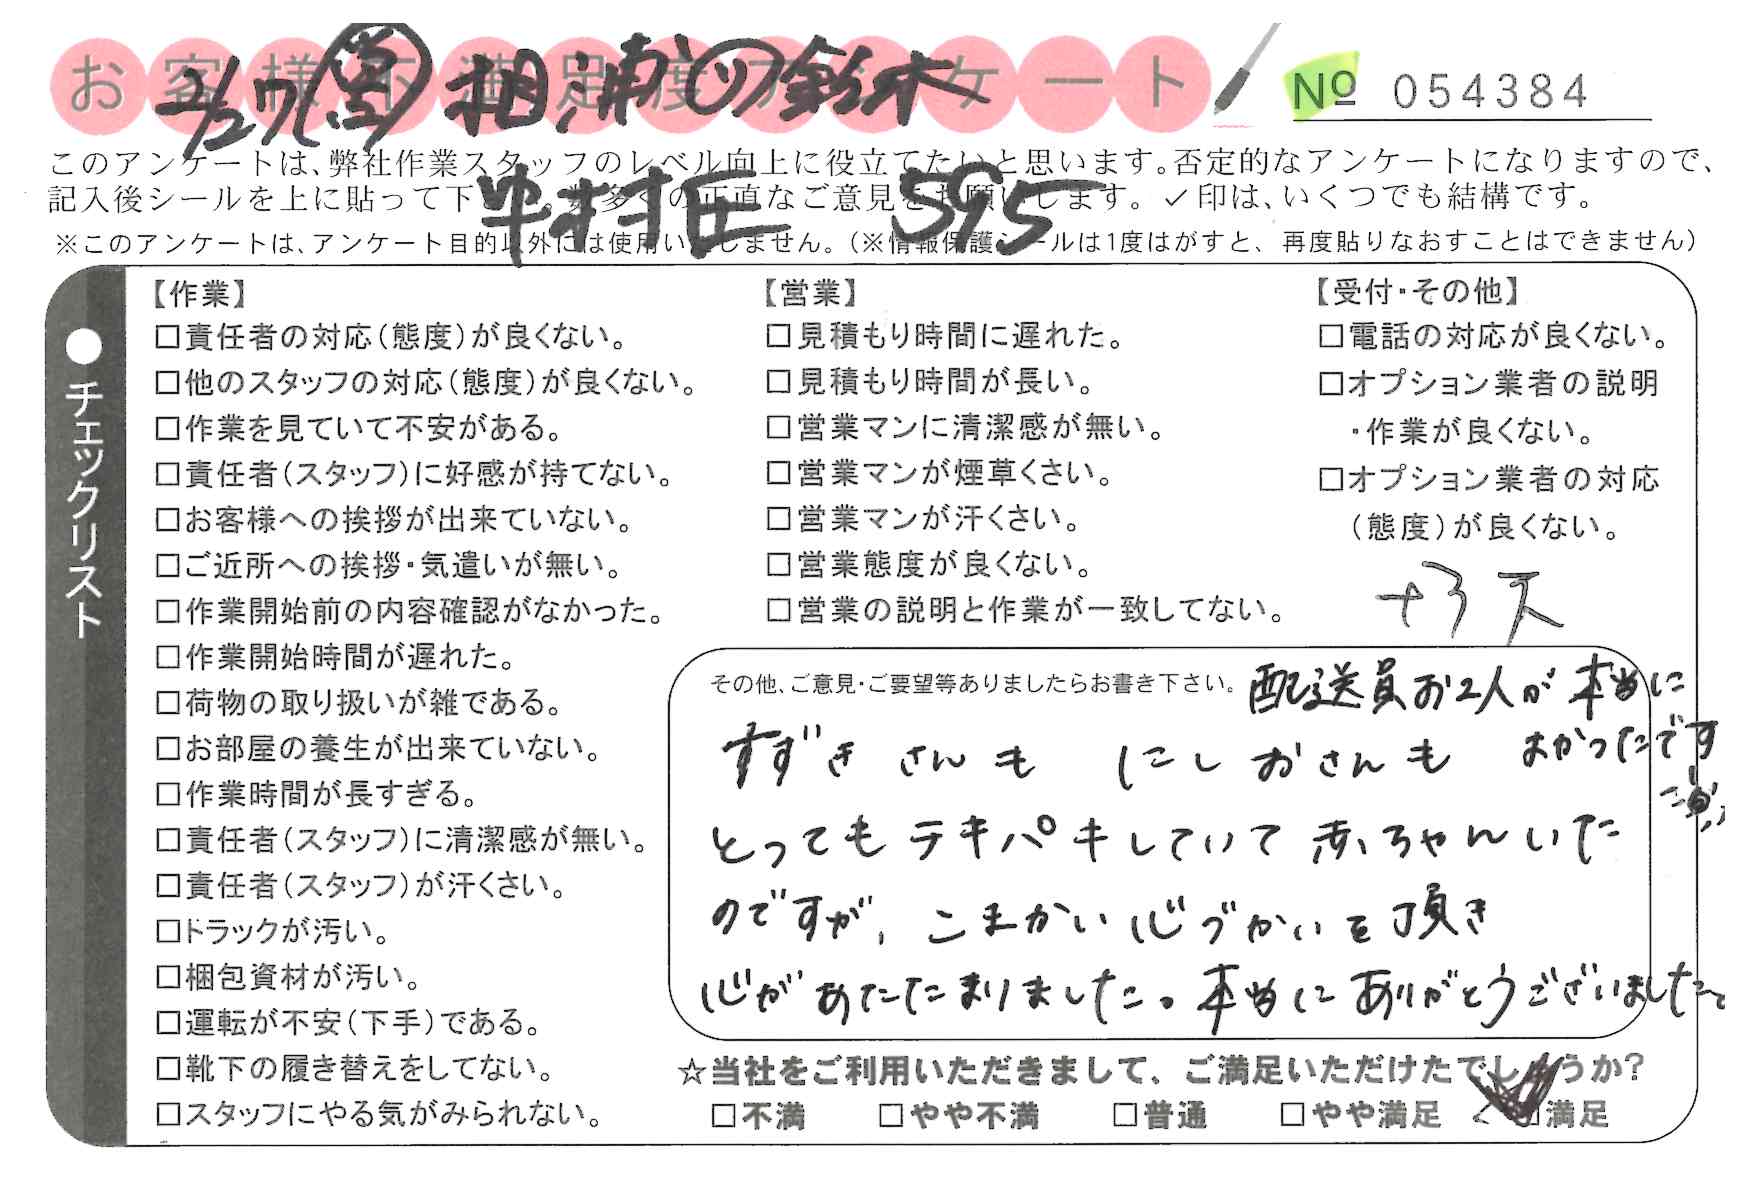 お客様不満足度アンケート
No 054384
2/27 相浦 鈴木
中村匠 595
このアンケートは、弊社作業スタッフのレベル向上に役立てたいと思います。否定的なアンケートになりますので、
記入後シールを上に貼って下さい。数多くの正直なご意見をお願いします。✓印は、いくつでも結構です。
※このアンケートは、アンケート目的以外には使用いたしません。（※情報保護シールは1度はがすと、再度貼りなおすことはできません）
●チェックリスト
【作業】
□責任者の対応（態度）が良くない。
□他のスタッフの対応（態度）が良くない。
□作業を見ていて不安がある。
□責任者（スタッフ）に好感が持てない。
□お客様への挨拶が出来ていない。
□ご近所への挨拶・気遣いが無い。
□作業開始前の内容確認がなかった。
□作業開始時間が遅れた。
□荷物の取り扱いが雑である。
□お部屋の養生が出来ていない。
□作業時間が長すぎる。
□責任者（スタッフ）に清潔感が無い。
□責任者（スタッフ）が汗くさい。
□トラックが汚い。
□梱包資材が汚い。
□運転が不安（下手）である。
□靴下の履き替えをしてない。
□スタッフにやる気がみられない。
【営業】
□見積もり時間に遅れた。
□見積もり時間が長い。
□営業マンに清潔感が無い。
□営業マンが煙草くさい。
□営業マンが汗くさい。
□営業態度が良くない。
□営業の説明と作業が一致してない。
【受付・その他】
□電話の対応が良くない。
□オプション業者の説明
・作業が良くない。
□オプション業者の対応
（態度）が良くない。
その他、ご意見・ご要望等ありましたらお書き下さい。
配送員お2人が本当に
よかったです
すずきさんも にしおさんも
とってもテキパキしていて赤ちゃんいた
のですが、こまかい心づかいを頂き
心があたたまりました。本当にありがとうございました。
☆当社をご利用いただきまして、ご満足いただけたでしょうか？
□不満 □やや不満 □普通 □やや満足 ☑満足